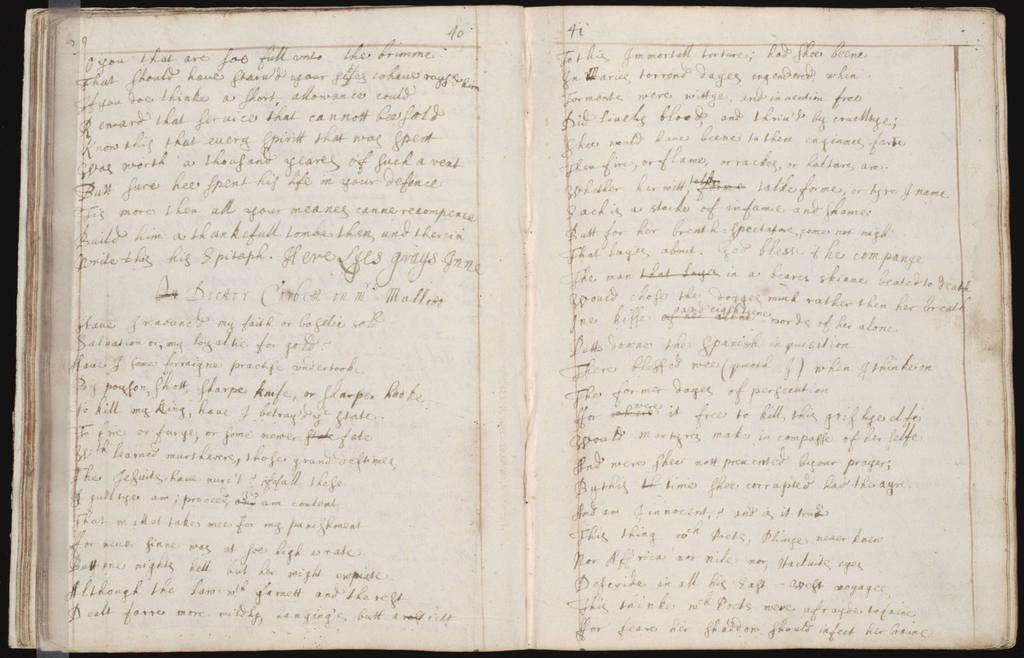 39
40
O you that are soe full unto the brimme
That should have starv'd your selves to have rays'd him
If you doe thinke a short allowance could
Reward that service that cannott bee sold
Know this that every spiritt that was spent
Was worth a thousand yeares of such a rent
Butt sure hee spent his life in your defence
Tis more then all your meanes canne recompence
Build him a thankefull tombe then, and therein
Write this his Epitaph. Here Lyes grays Inne
Docter Corbett on Mrs Mallett
Have I renounc'd my faith or basely sold
Salvation or, my loyaltie for gold
Have I some forraigne practise undertooke
By poyson, shott, sharpe knife, or sharper booke
To kill my King, have I betray'd ye state
To fire or furye, or some newer state fate
Wch learned murtherers, those grand destinies
The Jesuits have nurc'd? if of all these
I guiltye am; proceed, I am content
That Mallet take mee for my punishment
For never sinne was at soe high a rate
Butt one nights hell with her might expiate
Although the law wth Garnett and the rest
Dealt farre more mildly, hanging's butt a jest
41
To this Immortall torture; had shee beene
In Maries torrend dayes engendered when
Torments were wittye, and invention free
Did lively blood, and thriv'd by crueltye;
Shee would have beene to these enginnes farre
Then fire, or flame, or rackes, or haltars, are.
Whether her witt, forme talke forme, or tyre I name
Each is a stocke of infamie and shame:
Butt for her breath: Spectators, come not nigh
That layes about. God bless the companye
The man that layes in a beares skinne beated to death
Would chose the dogges much rather then her breath
One kisse of her and eighteene words of her alone
Putts downe the Spanish inquisition
Therce blessed wee (quoth I) when I thinke on
The former dayes of persecution
For were it free to kill, this grislye elfe
Would martyres make in compasse of her selfe
And were shee nott prevented by our prayer;
By this time shee corrupted had the ayre.
And am I innocent? and is it true
This thing wch Poets, Plinye never knew
Nor Africa nor Nile nor, Hacluits eyes
Describe in all his East-west voyages
This thinke wch Poets were afrayde to faine
For feare her shaddow should infect her braine